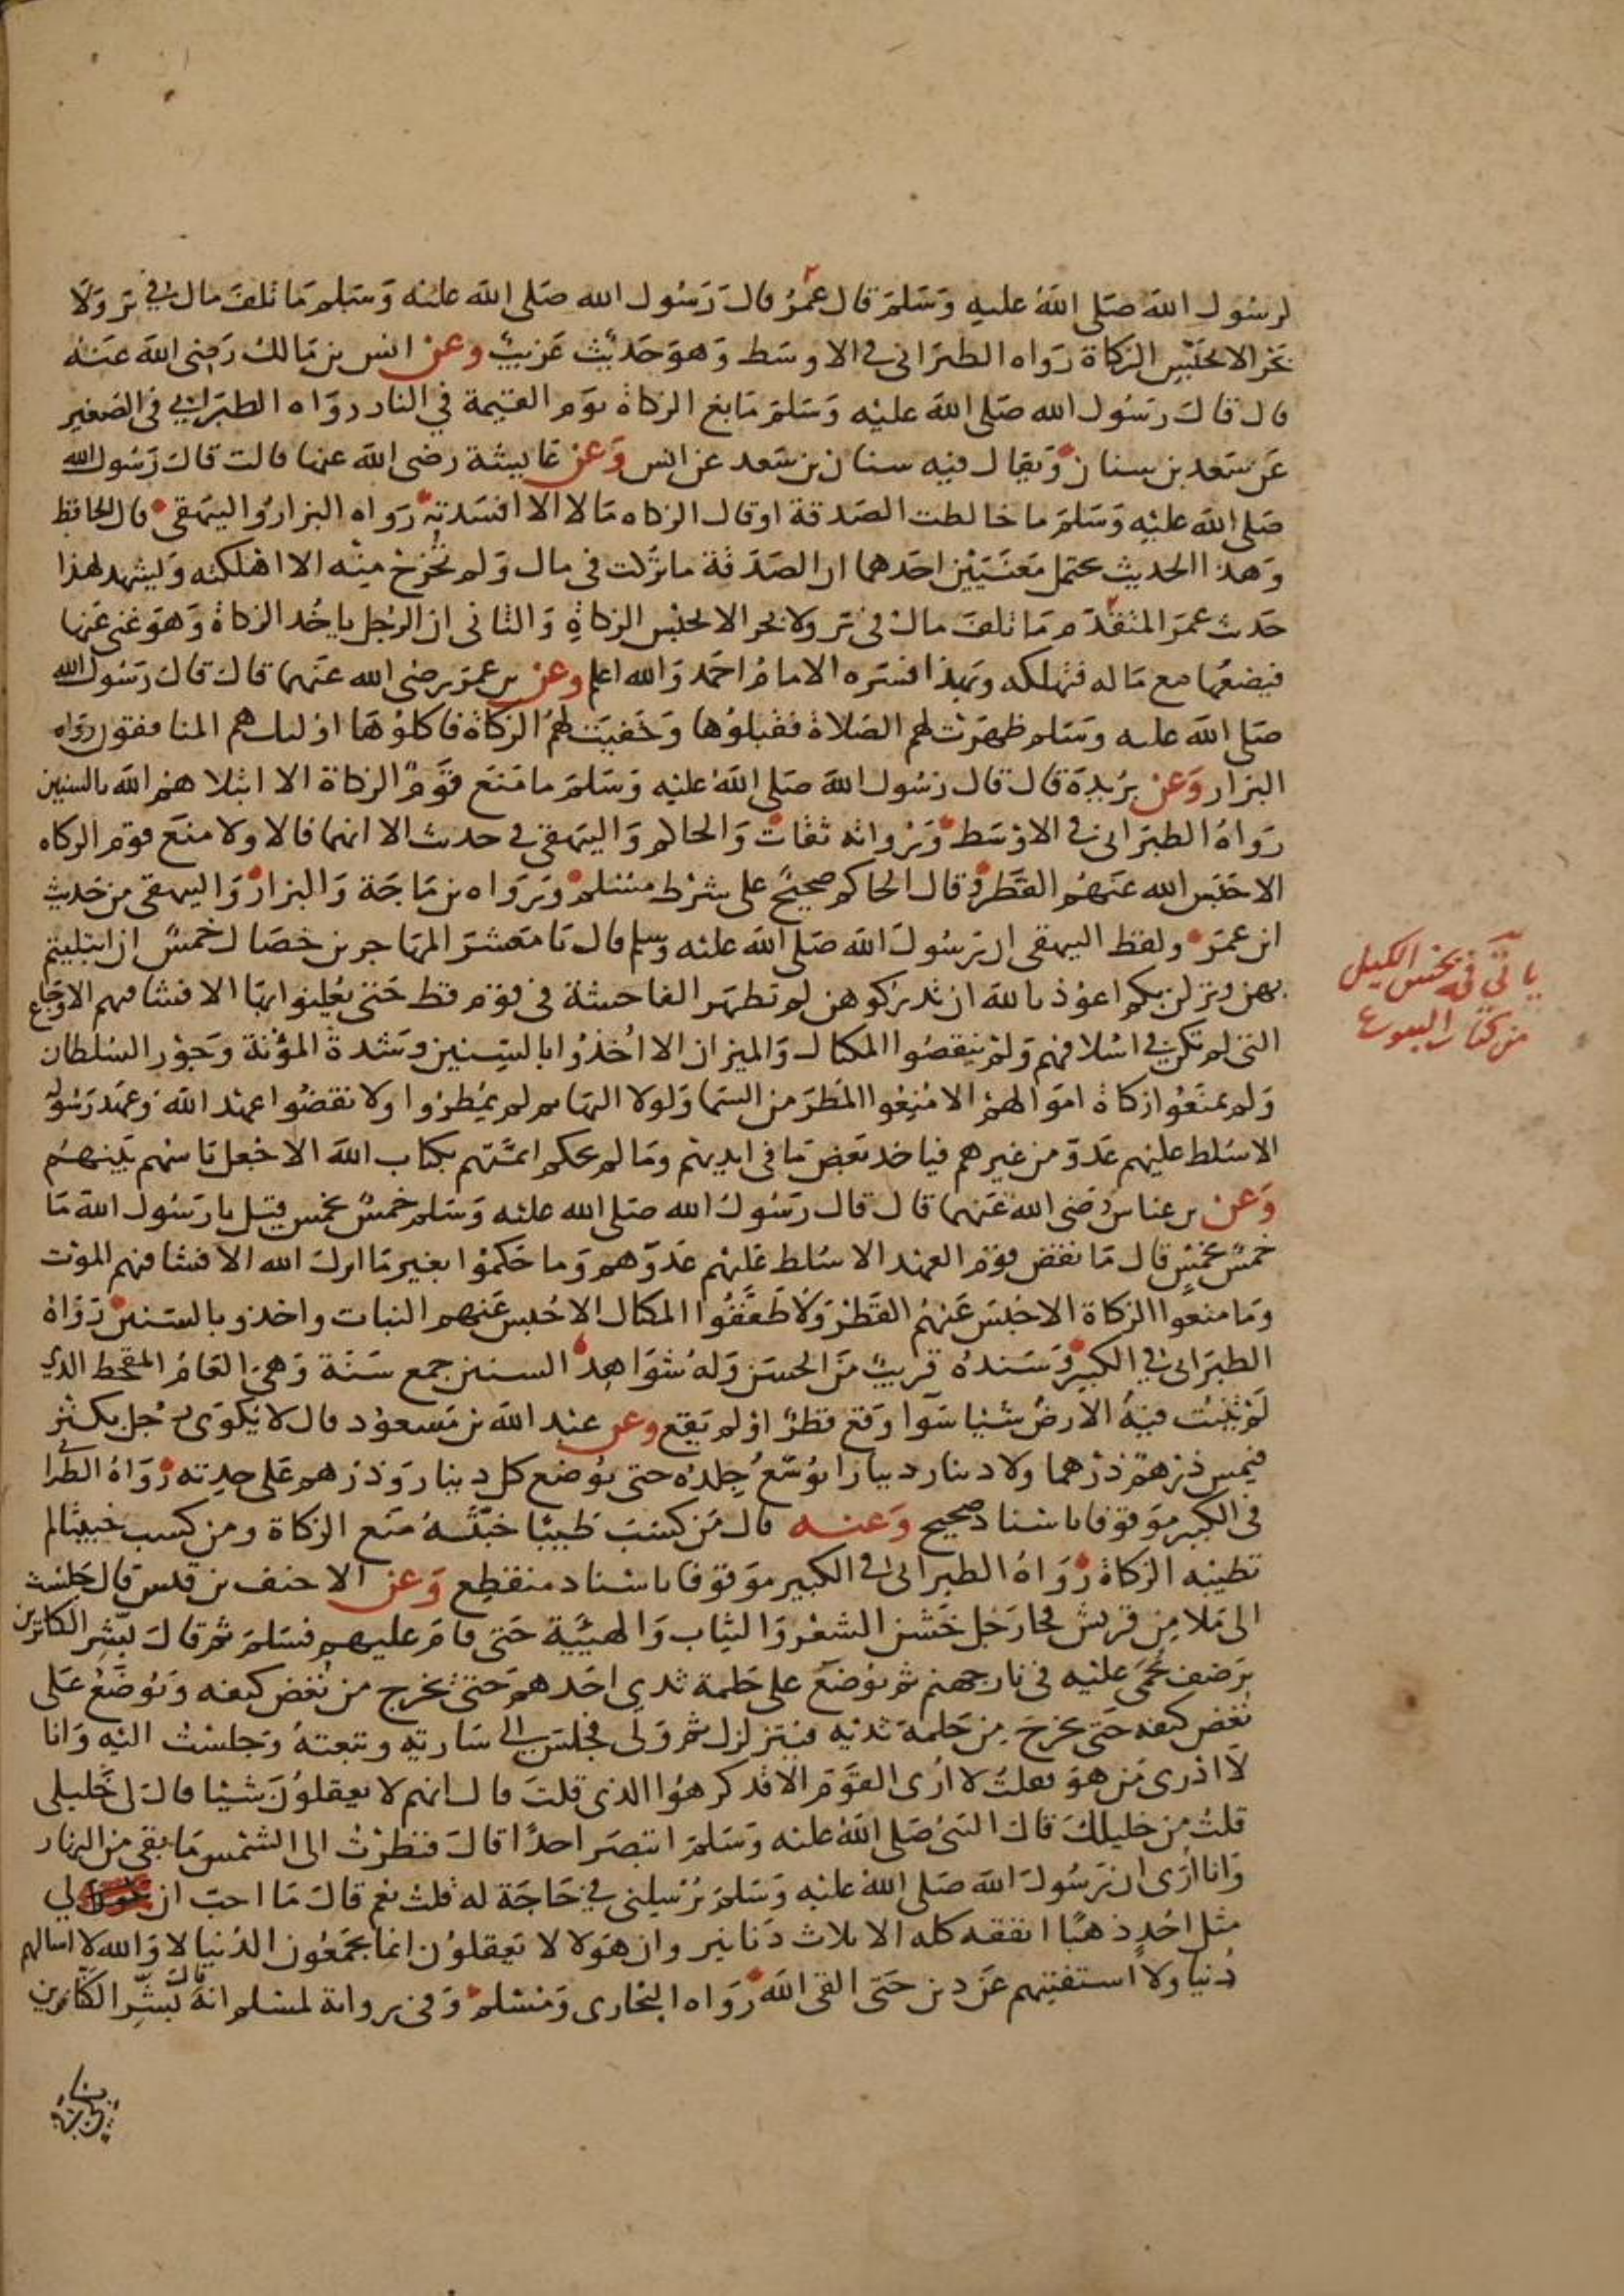 لرسول الله صلى الله عليه وسلم قال عمر قال رسول الله صلى الله عليه وسلم ما تلف مال في بر ولا
بحر الا بحبس الزكاة رواه الطبراني في الاوسط وهو حديث غريب وعن انس بن مالك رضي الله عنه
قال قال رسول الله صلى الله عليه وسلم مانع الزكاة يوم القيمة في النار رواه الطبراني في الصغير
عن سعد بن سنان ويقال فيه سنان بن سعد عن انس وعن عايشة رضي الله عنها قالت قال رسول الله
صلى الله عليه وسلم ما خالطت الصدقة او قال الزكاه مالا الا افسدته رواه البزار والبيهقي قال الحافظ
وهذا الحديث يحتمل معنيين احدهما ان الصدقة ما تركت في مال ولم تخرج منه الا اهلكته ويشهد لهذا
حديث عمر المتقدم ما تلف مال في بر ولا بحر الا بحبس الزكاة والثاني ان الرجل ياخذ الزكاة وهو غني عنها
فيضعها مع ماله فتهلكه وبهذا فسره الامام احمد والله اعلم وعن بن عمر رضي الله عنهما قال قال رسول الله
صلى الله عليه وسلم ظهرت لهم الصلاة فقبلوها وخفيت لهم الزكاة فاكلوها اولئك هم المنافقون رواه
البزار وعن بريدة قال قال رسول الله صلى الله عليه وسلم ما منع قوم الزكاة الا ابتلاهم الله بالسنين
رواه الطبراني في الاوسط ورواته ثقات والحاكم والبيهقي في حديث الا انهما قالا ولا منع قوم الزكاه
الا حبس الله عنهم القطر وقال الحاكم صحيح على شرط مسلم ورواه بن ماجة والبزار والبيهقي من حديث
ابن عمر ولفظ البيهقي ان رسول الله صلى الله عليه وسلم قال يا معشر المهاجرين خصال خمس ان ابتليتم
بهن ونزلن بكم اعوذ بالله ان تدركوهن لم تظهر الفاحشة في قوم قط حتى يعلنوا بها الا فشا فيهم الاوجاع
التي لم تكن في اسلافهم ولم ينقصوا المكيال والميزان الا اخذوا بالسنين وشدة المؤنة وجور السلطان
ولم يمنعوا زكاة اموالهم الا منعوا المطر من السما ولولا البهايم لم يمطروا ولا نقضوا عهد الله وعهد رسوله
الا سلط عليهم عدو من غيرهم فياخذ بعض ما في ايديهم وما لم يحكم ايمتهم بكتاب الله الا جعل باسهم بينهم
وعن بن عباس رضي الله عنهما قال قال رسول الله صلى الله عليه وسلم خمس بخمس قيل يا رسول الله ما
خمس بخمس قال ما نقض قوم العهد الا سلط عليهم عدوهم وما حكموا بغير ما انزل الله الا فشا فيهم الموت
وما منعوا الزكاة الا حبس عنهم القطر ولا طففوا المكيال الا حبس عنهم النبات واخذو بالسنين رواه
الطبراني في الكبير وسنده قريب من الحسن وله شواهد السنين جمع سنة وهي العام المقحط الذي
لم تنبت فيه الارض شيئا سوا وقع قطر او لم يقع وعن عبد الله بن مسعود قال لا يكوى رجل بكنز
فيمس درهم درهما ولا دينار دينارا يوسع جلده حتى يوضع كل دينار ودرهم على حدته رواه الطبرا
في الكبير موقوفا باسناد صحيح وعنه قال من كسب طيبا خبثه منع الزكاة ومن كسب خبيثا لم
تطيبه الزكاة رواه الطبراني في الكبير موقوفا باسناد منقطع وعن الاحنف بن قيس قال جلست
الى ملا من قريش فجا رجل خشن الشعر والثياب والهيئة حتى قام عليهم فسلم ثم قال بشر الكانزين
برضف يحمى عليه في نار جهنم ثم يوضع على حلمة ثدي احدهم حتى يخرج من نغض كتفه ويوضع على
نغض كتفه حتى يخرج من حلمة ثديه فيتزلزل ثم ولى فجلس الى سارية وتبعته وجلست اليه وانا
لا ادري من هو فقلت لا ارى القوم الا قد كرهوا الذي قلت قال انهم لا يعقلون شيئا قال لي خليلي
قلت من خليلك قال النبي صلى الله عليه وسلم اتبصر احدا قال فنظرت الى الشمس ما بقي من النهار
وانا ارى ان رسول الله صلى الله عليه وسلم يرسلني في حاجة له قلت نعم قال ما احب ان لي
مثل احد ذهبا انفقه كله الا ثلاث دنانير وان هولا لا يعقلون انما يجمعون الدنيا لا والله لا اسالهم
دنيا ولا استفتيهم عن دين حتى القى الله رواه البخاري ومسلم وفي رواية لمسلم انه قال بشر الكانزين
ياتي في بخس الكيل
من كتاب البيوع